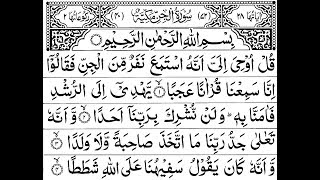 اٰیَاتُهَا ۲۸ (۷۲) سُوْرَةُ الْجِنِّ مَكِّیَّةٌ (۴۰) رُكُوْعَاتُهَا ۲
بِسْمِ اللّٰهِ الرَّحْمٰنِ الرَّحِیْمِ
قُلْ اُوْحِیَ اِلَیَّ اَنَّهُ اسْتَمَعَ نَفَرٌ مِّنَ الْجِنِّ فَقَالُوْۤا
اِنَّا سَمِعْنَا قُرْاٰنًا عَجَبًا ۙ۱ یَّهْدِیْۤ اِلَی الرُّشْدِ
فَاٰمَنَّا بِهٖ ؕ وَلَنْ نُّشْرِكَ بِرَبِّنَاۤ اَحَدًا ۙ۲ وَّاَنَّهٗ
تَعٰلٰی جَدُّ رَبِّنَا مَا اتَّخَذَ صَاحِبَةً وَّلَا وَلَدًا ۙ۳
وَّاَنَّهٗ كَانَ یَقُوْلُ سَفِیْهُنَا عَلَی اللّٰهِ شَطَطًا ۙ۴